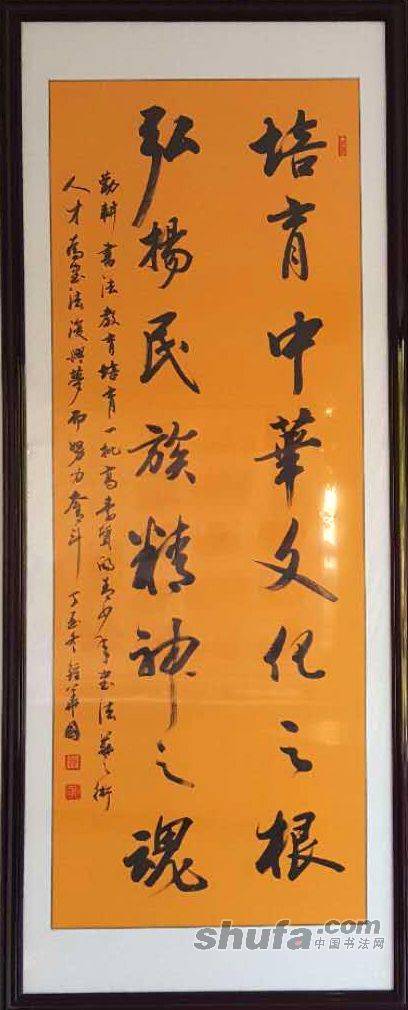 培育中華文化之根
弘揚民族精神之魂
勤耕書法教育培育一批高素質的青少年書法藝術
人才為書法復興夢而努力奮斗 丁酉冬
shufa.com
中国书法网